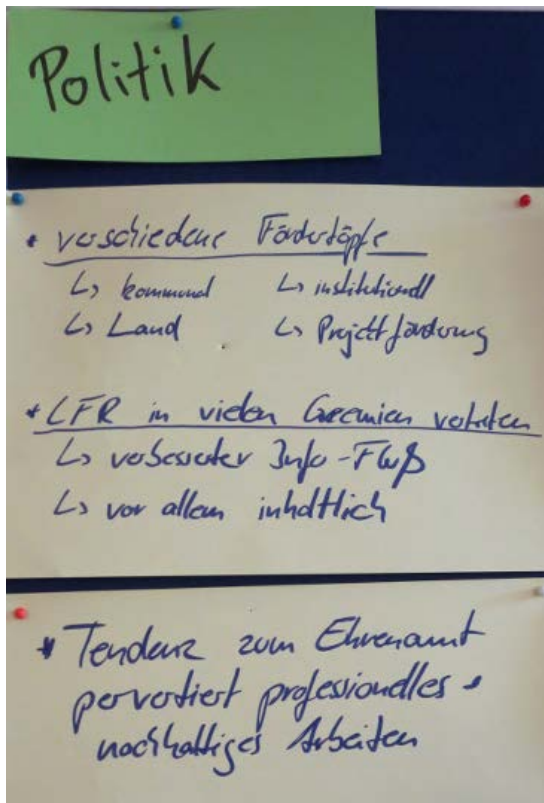 Politik
* verschiedene Fördertöpfe
↳ kommunal ↳ institutionell
↳ Land ↳ Projektförderung
* LFR in vielen Gremien vertreten
↳ verbesserter Info-Fluß
↳ vor allem inhaltlich
* Tendenz zum Ehrenamt
pervertiert professionelles +
nachhaltiges Arbeiten